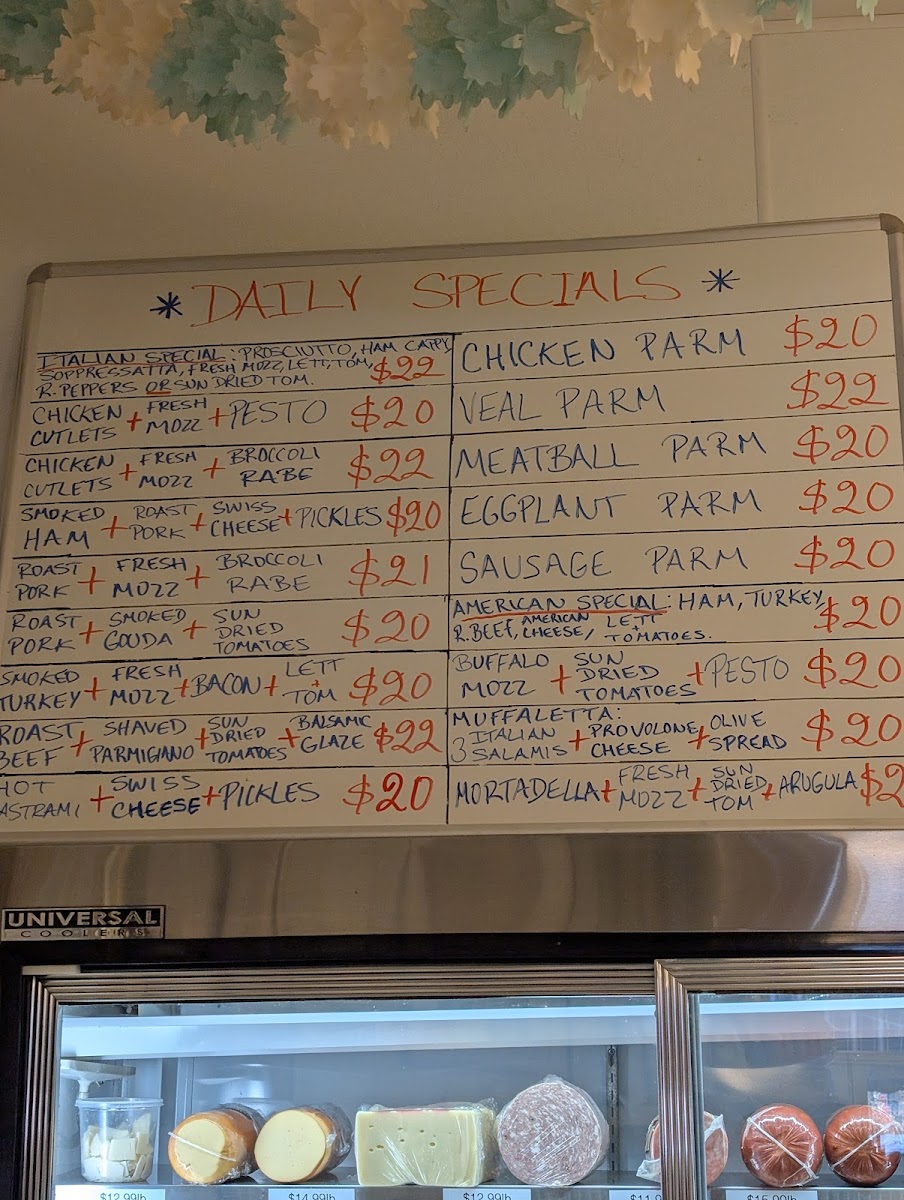 * DAILY SPECIALS *
ITALIAN SPECIAL: PROSCIUTTO, HAM CAPPY,
SOPPRESSATTA, FRESH MOZZ, LETT, TOM,
R. PEPPERS OR SUN DRIED TOM. $22
CHICKEN CUTLETS + FRESH MOZZ + PESTO $20
CHICKEN CUTLETS + FRESH MOZZ + BROCCOLI RABE $22
SMOKED HAM + ROAST PORK + SWISS CHEESE + PICKLES $20
ROAST PORK + FRESH MOZZ + BROCCOLI RABE $21
ROAST PORK + SMOKED GOUDA + SUN DRIED TOMATOES $20
SMOKED TURKEY + FRESH MOZZ + BACON + LETT + TOM $20
ROAST BEEF + SHAVED PARMIGIANO + SUN DRIED TOMATOES + BALSAMIC GLAZE $22
HOT ASTRAMI + SWISS CHEESE + PICKLES $20
CHICKEN PARM $20
VEAL PARM $22
MEATBALL PARM $20
EGGPLANT PARM $20
SAUSAGE PARM $20
AMERICAN SPECIAL: HAM, TURKEY,
R. BEEF, AMERICAN CHEESE, LETT + TOMATOES. $20
BUFFALO MOZZ + SUN DRIED TOMATOES + PESTO $20
MUFFALETTA:
3 ITALIAN SALAMIS + PROVOLONE CHEESE + OLIVE SPREAD $20
MORTADELLA + FRESH MOZZ + SUN DRIED TOM + ARUGULA $2
UNIVERSAL
COOLERS
$12.99lb
$14.99lb
$12.99lb
$15.99lb